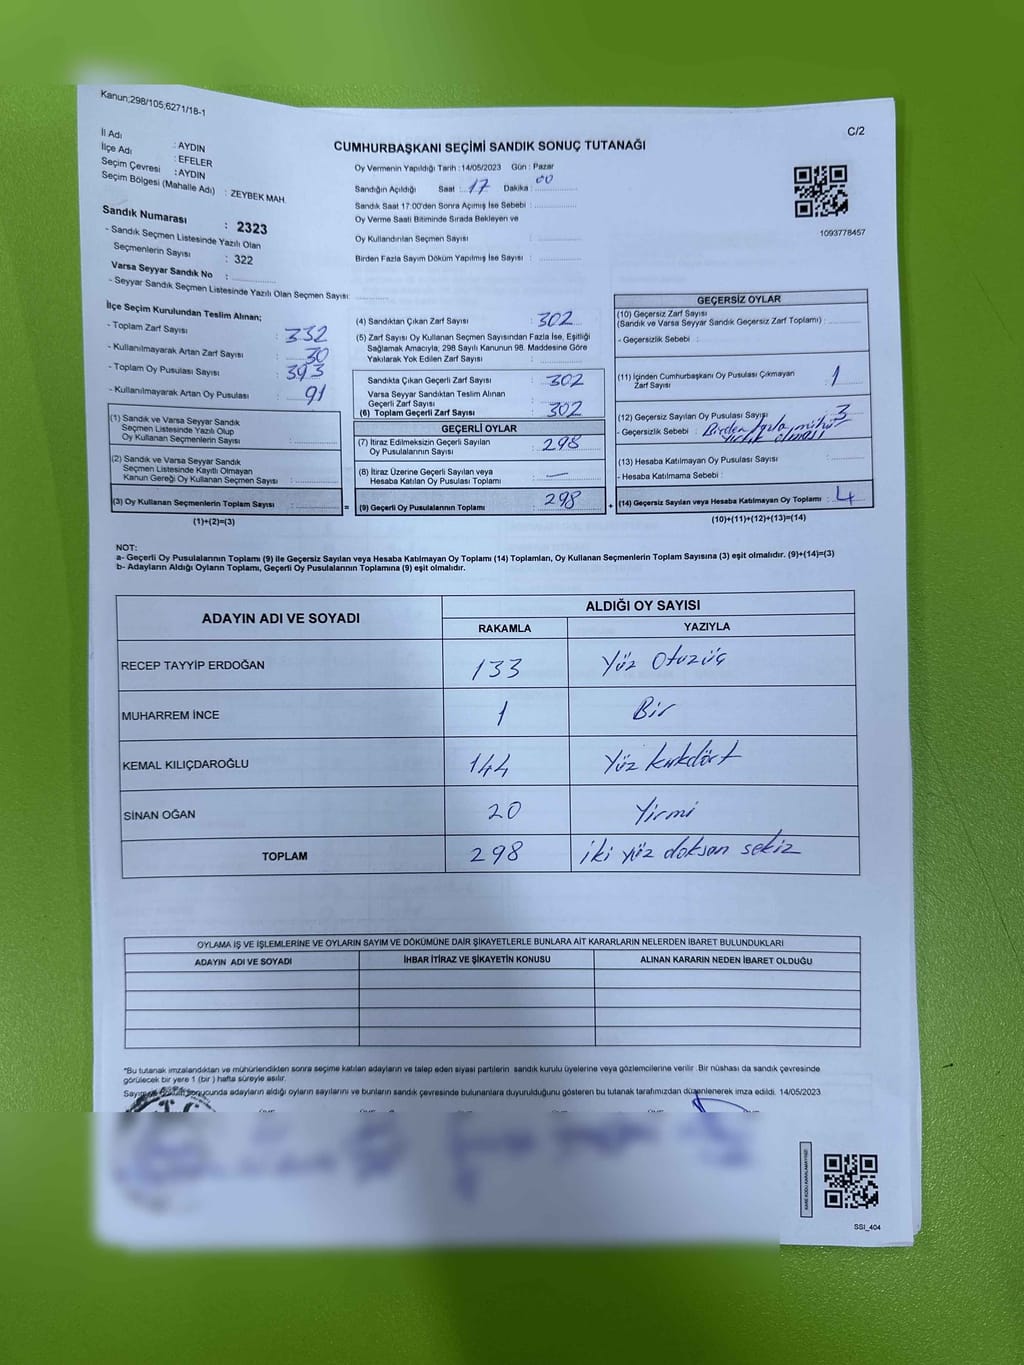 Kanun;298/105,6271/18-1
C/2
CUMHURBAŞKANI SEÇİMİ SANDIK SONUÇ TUTANAĞI
İl Adı : AYDIN
İlçe Adı : EFELER
Seçim Çevresi : AYDIN
Seçim Bölgesi (Mahalle Adı) : ZEYBEK MAH.
Sandık Numarası : 2323
- Sandık Seçmen Listesinde Yazılı Olan
Seçmenlerin Sayısı : 322
Varsa Seyyar Sandık No :
- Seyyar Sandık Seçmen Listesinde Yazılı Olan Seçmen Sayısı:
Oy Vermenin Yapıldığı Tarih : 14/05/2023 Gün : Pazar
Sandığın Açıldığı Saat : 17 Dakika : 00
Sandık Saat 17:00'den Sonra Açımış İse Sebebi :
Oy Verme Saati Bitiminde Sırada Bekleyen ve
Oy Kullandırılan Seçmen Sayısı :
Birden Fazla Sayım Döküm Yapılmış İse Sayısı :
1093778457
İlçe Seçim Kurulundan Teslim Alınan;
- Toplam Zarf Sayısı : 332
- Kullanılmayarak Artan Zarf Sayısı : 30
- Toplam Oy Pusulası Sayısı : 393
- Kullanılmayarak Artan Oy Pusulası : 91
(1) Sandık ve Varsa Seyyar Sandık
Seçmen Listesinde Yazılı Olup
Oy Kullanan Seçmenlerin Sayısı :
(2) Varsa Seyyar Sandık ve Sandık
Seçmen Listesinde Kayıtlı Olmayan
Kanun Gereği Oy Kullanan Seçmen Sayısı :
(3) Oy Kullanan Seçmenlerin Toplam Sayısı :
(1)+(2)=(3)
(4) Sandıktan Çıkan Zarf Sayısı : 302
(5) Zarf Sayısı Oy Kullanan Seçmen Sayısından Fazla İse, Eşitliği
Sağlamak Amacıyla, 298 Sayılı Kanunun 98. Maddesine Göre
Yakılarak Yok Edilen Zarf Sayısı :
Sandıkta Çıkan Geçerli Zarf Sayısı : 302
Varsa Seyyar Sandıktan Teslim Alınan
Geçerli Zarf Sayısı :
(6) Toplam Geçerli Zarf Sayısı : 302
GEÇERLİ OYLAR
(7) İtiraz Edilmeksizin Geçerli Sayılan
Oy Pusulasının Sayısı : 298
(8) İtiraz Üzerine Geçerli Sayılan veya
Hesaba Katılan Oy Pusulası Toplamı : —
= (9) Geçerli Oy Pusulalarının Toplamı : 298
GEÇERSİZ OYLAR
(10) Geçersiz Zarf Sayısı
(Sandık ve Varsa Seyyar Sandık Geçersiz Zarf Toplamı) :
- Geçersizlik Sebebi :
(11) İçinden Cumhurbaşkanı Oy Pusulası Çıkmayan
Zarf Sayısı : 1
(12) Geçersiz Sayılan Oy Pusulası Sayısı : 3
- Geçersizlik Sebebi : Birden fazla mühür
olması
(13) Hesaba Katılmayan Oy Pusulası Sayısı :
- Hesaba Katılmama Sebebi :
+ (14) Geçersiz Sayılan veya Hesaba Katılmayan Oy Toplamı : 4
(10)+(11)+(12)+(13)=(14)
NOT:
a- Geçerli Oy Pusulalarının Toplamı (9) ile Geçersiz Sayılan veya Hesaba Katılmayan Oy Toplamı (14) Toplamları, Oy Kullanan Seçmenlerin Toplam Sayısına (3) eşit olmalıdır. (9)+(14)=(3)
b- Adayların Aldığı Oyların Toplamı, Geçerli Oy Pusulalarının Toplamına (9) eşit olmalıdır.
ADAYIN ADI VE SOYADI ALDIĞI OY SAYISI
RAKAMLA YAZIYLA
RECEP TAYYİP ERDOĞAN 133 Yüz Otuzüç
MUHARREM İNCE 1 Bir
KEMAL KILIÇDAROĞLU 144 Yüz kırkdört
SİNAN OĞAN 20 Yirmi
TOPLAM 298 iki yüz doksan sekiz
OYLAMA İŞ VE İŞLEMLERİNE VE OYLARIN SAYIM VE DÖKÜMÜNE DAİR ŞİKAYETLERLE BUNLARA AİT KARARLARIN NELERDEN İBARET BULUNDUKLARI
ADAYIN ADI VE SOYADI İHBAR İTİRAZ VE ŞİKAYETİN KONUSU ALINAN KARARIN NEDEN İBARET OLDUĞU
*Bu tutanak imzalandıktan ve mühürlendikten sonra seçime katılan adayların ve talep eden siyasi partilerin sandık kurulu üyelerine veya gözlemcilerine verilir. Bir nüshası da sandık çevresinde
görülecek bir yere 1 (bir) hafta süreyle asılır.
sonucunda adayların aldığı oyların sayılarını ve bunların sandık çevresinde bulunanlara duyurulduğunu gösteren bu tutanak tarafımızdan düzenlenerek imza edildi. 14/05/2023
SSI_404